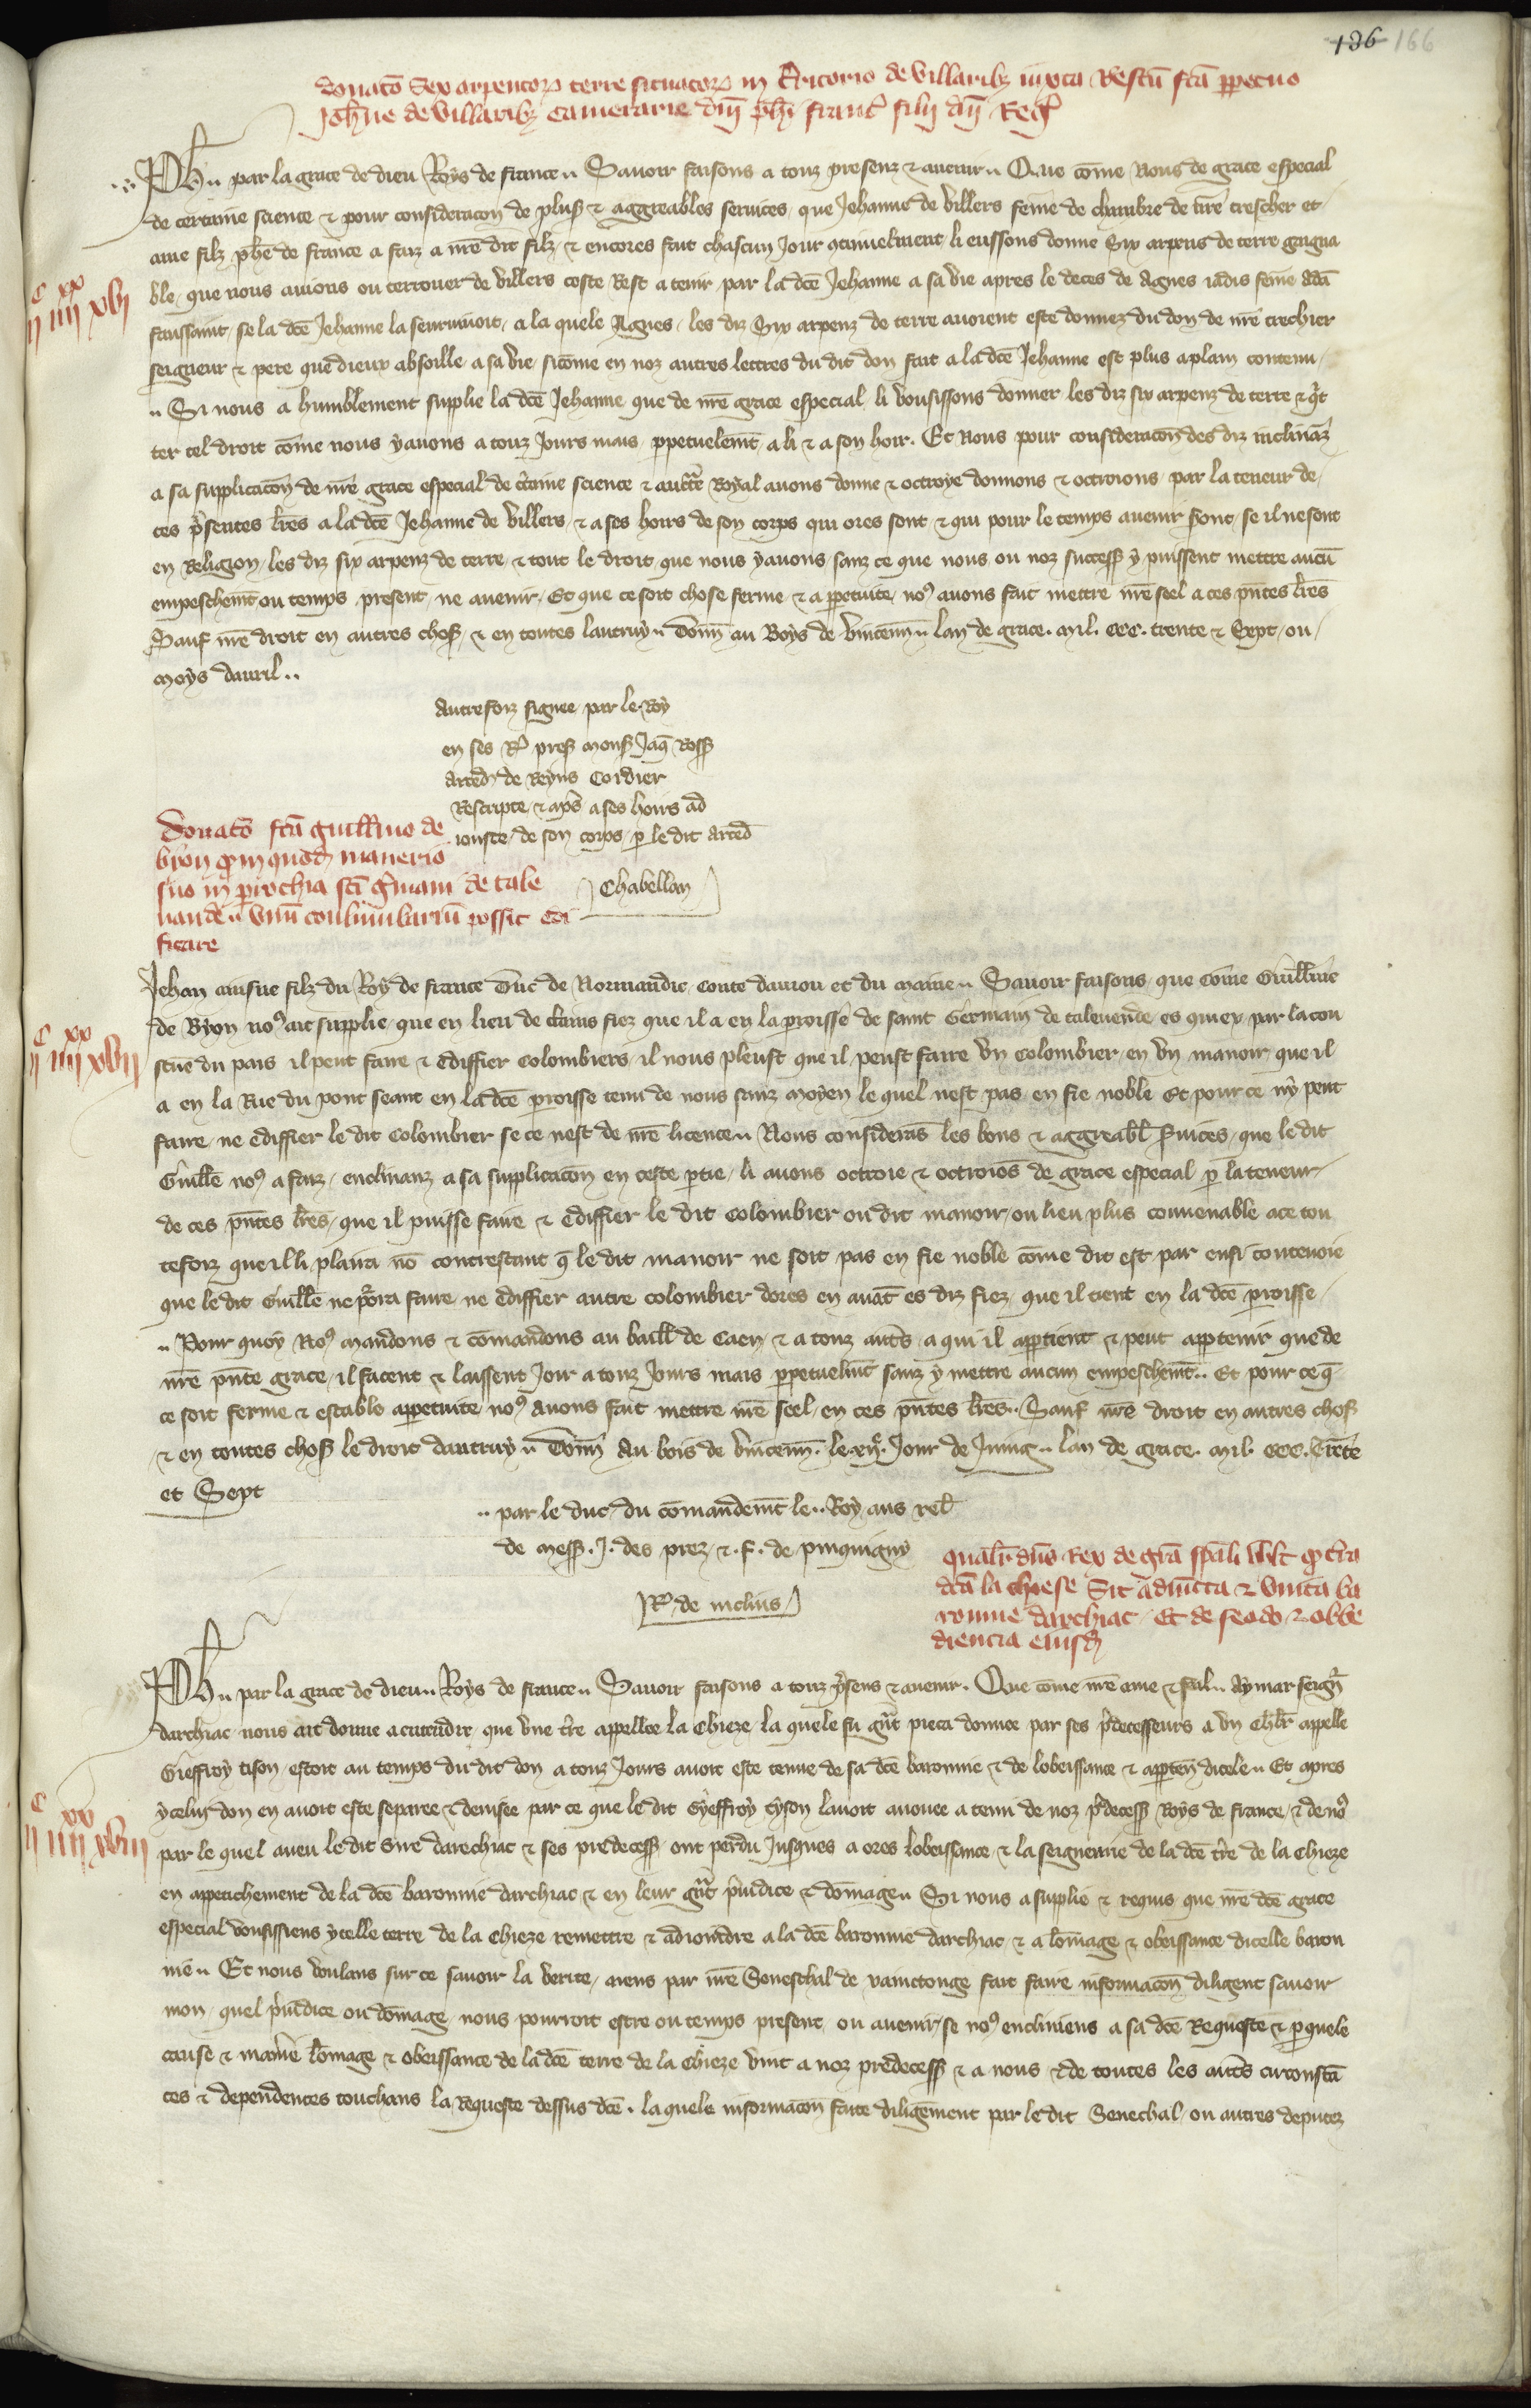 136 166
donatō Sex arpentor terre situator in t'ritorio de villaribȝ iuxta Restū fcā ppetuo
Joħne de villaribȝ camerarie dñi phi franc' filii dñi Reg'
Ph' par la grace de dieu Roys de france Savoir faisons a touz presenz & avenir Que cōme Nous de grace especial
de certaine science & pour consideracon de plus' & aggreables services que Jehanne de villers feme de chambre de nr̄e trescher et
ame filz phē de france a faiz a nr̄e dit filz & encores fait chascun Jour 9tinuelment li eussons donne Six arpens de terre gaigna
ble que nous avions ou terrouer de villers coste Rest a tenir par la dcē Jehanne a sa vie apres le deces de Agnes iadis feme adā
faussaint se la dcē Jehanne la seurvivoit a la quele Agnes les diz Six arpenz de terre avoient este donnez du don de nr̄e trechier
seigneur & pere que dieux absoille a sa vie sicōme en noz autres lettres du dit don fait a la dcē Jehanne est plus aplain contenu
Si nous a humblement supplie la dcē Jehanne que de nr̄e grace especial li vousissons donner les diz six arpenz de terre & q't
ter tel droit cōme nous y avons a touz Jours mais ppetuelemt a li & a son hoir. Et Nous pour consideracōn des diz inclināz
a sa supplicacōn de nr̄e grace especial de c'taine science & auctē Royal avons donne & octroye donnons & octroions par la teneur de
ces p'sentes lr̄es a la dcē Jehanne de villers & a ses hoirs de son corps qui ores sont & qui pour le temps avenir s'ont se il ne sont
en Religion les diz six arpenz de terre & tout le droit que nous y avons sanz ce que nous ou noz success' y puissent mettre aucū
empeschemt ou temps present ne avenir. Et que ce soit chose ferme & a ppetuite no9 avons fait mettre nr̄e seel a ces pñtes lr̄es
Sauf nr̄e droit en autres chos' & en toutes lautruy Donn' au Boys de vincenn' lan de grace. mil. ccc. trente & Sept ou
moys davril..
Autrefoiz signee par le Roy
en ses Rq' pres' mons' Jaq' Rouss'
arced' de Reyns Cordier
Rescripte & mis a ses hoirs ad
iouste de son corps p le dit arced'
Chabellan
Donatō fcā guillmo de
byon q' in quod' manerio
suo in p'rochia sci G'mani de tale
vande vnū coulumbariū possit edi
ficare
Jehan ainsne filz du Roy de france Duc de Normandie conte daniou et du maine Savoir faisons que Cōme Guillme
de Byon no9 ait supplie que en lieu de c'tains fiez que il a en la proisse de saint Germain de talevende es quiex par la cou
stūe du pais il peut faire & ediffier colombiers il nous pleust que il peust faire vn colombier en vn manoir que il
a en la Rue du pont seant en la dcē proisse tenu de nous sanz moyen le quel nest pas en fie noble Et pour ce ny peut
faire ne ediffier le dit Colombier se ce nest de nr̄e licence Nous considerās les bons & aggreabl' s'vices que le dit
Guille no9 a faiz enclinanz a sa supplicacōn en ceste ptie li avons octroie & octroiōs de grace especial p la teneur
de ces pñtes lr̄es que il puisse faire & ediffier le dit colombier ou dit manoir ou lieu plus convenable a ce tou
tefoiz que il li plaira nō contrestant q̄ le dit manoir ne soit pas en fie noble cōme dit est par ensi toutevoie
que le dit Guille ne porra faire ne ediffier autre colombier dores en avāt es diz fiez que il tient en la dcē proisse
Pour quoy No9 mandons & cōmandons au baill' de Caen & a touz aut's a qui il apptient & peut apptenir que de
nr̄e pñte grace il facent & laissent Joir a touz Jours mais ppetuelmt sanz y mettre aucun empeschemt.. Et pour ce q̄
ce soit ferme & estable appetuite no9 avons fait mettre nr̄e seel en ces pñtes lr̄es.. Sauf nr̄e droit en autres chos'
& en toutes chos' le droit dautruy Donn' Au bois de vincenn'. le xij'. Jour de Juing lan de grace. mil. ccc. Trēte
et Sept
.. par le duc du cōmandemt le.. Roy aus rel'
de mess'. J. des prez & . f. de pinquigny
R' de molins
Qual'r dñs Rex de grā spāli vult q' t'ra
dcā la chiese Sit adiuncta & vnita ba
ronnie darchiac Et de feodo & obbe
diencia eiusd'
Ph' par la grace de dieu Roys de france Savoir faisons a touz p'sens & avenir. Que cōme nr̄e ame & feal Aymar seign'r
darchiac nous ait donne a entendre que vne t're appellee la Chieze la quele fu g'nt pieca donnee par ses p'decesseurs a vn Chl'r appelle
Gieffroy tison estoit au temps du dit don a touz Jours avoit este tenue de sa dcē baronnie & de lobeissance & apptēn dicele Et apres
ycelui don en avoit este separee & devisee par ce que le dit Gyeffroy tyson lavoit avouee a tenu de noz p'decess' Roys de france & de no9
par le quel aveu le dit Sire darechiac & ses predecess' ont perdu Jusques a ores lobeissance & la seigneurie de la dcē t're de la Chieze
en appetichement de la dcē baronnie darchiac & en leur g'nt p'iudice & dōmage Si nous a suplie & requis que nr̄e dcē grace
especial vousissiens ycelle terre de la Chieze remettre & adioindre a la dcē baronnie darchiac & a lōmage & obeissance dicelle baron
nie Et nous voulans sur ce savoir la verite aiens par nr̄e Seneschal de xainctonge fait faire informacōn diligent savoir
mon quel p'iudice ou dōmage nous pourroit estre ou temps present ou avenir se no9 encliniens a sa dcē Requeste & p quele
cause & mañie lōmage & obeissance de la dcē terre de la Chieze vint a noz predecess' & a nous & de toutes les aut's circonstā
ces & dependences touchans la Requeste dessus dcē. la quele informacōn faite diligēment par le dit Senechal ou autres deputez
c xx
ij iiij xvj
c xx
ij iiij xvij
c xx
ij iiij xviij